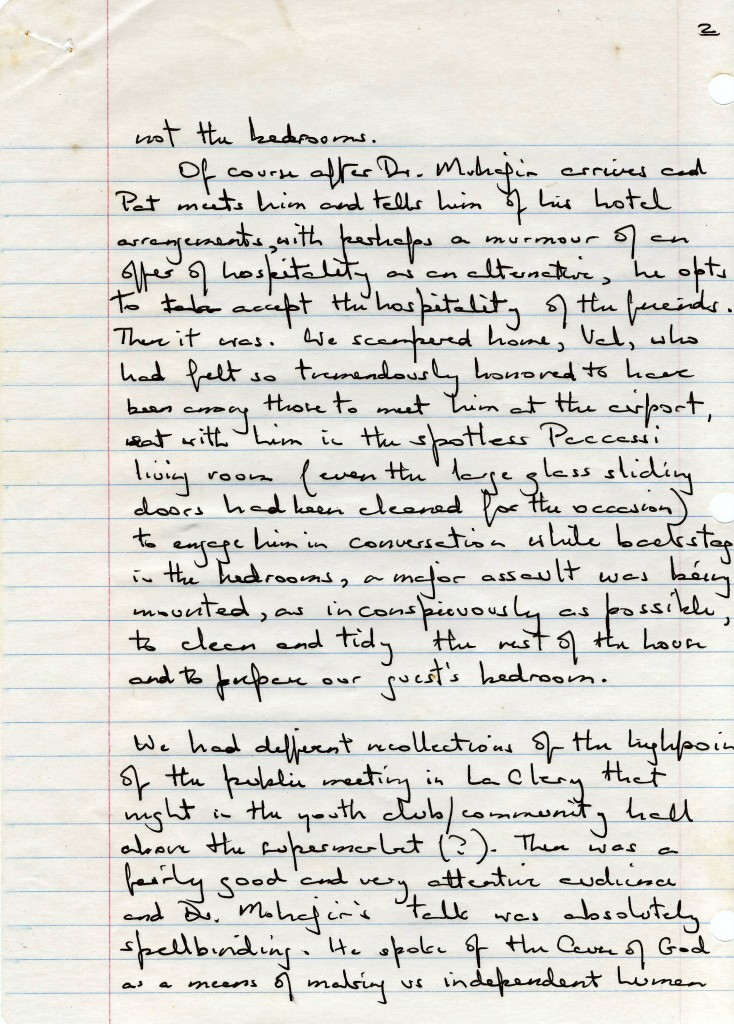 2
not the bedrooms.
Of course after Dr. Muhajir arrives and
Pat meets him and tells him of his hotel
arrangements, with perhaps a murmour of an
offer of hospitality as an alternative, he opts
to take accept the hospitality of the friends.
There it was. We scampered home, Val, who
had felt so tremendously honored to have
been among those to meet him at the airport,
sat with him in the spotless Paccassi
living room (even the large glass sliding
doors had been cleaned for the occasion)
to engage him in conversation while backstag
in the bedrooms, a major assault was being
mounted, as inconspicuously as possible,
to clean and tidy the rest of the house
and to prepare our guest's bedroom.
We had different recollections of the highpoin
of the public meeting in La Clery that
night in the youth club/community hall
above the supermarket (?). There was a
fairly good and very attentive audience
and Dr. Mohajir's talk was absolutely
spellbinding. He spoke of the Cause of God
as a means of making us independent human